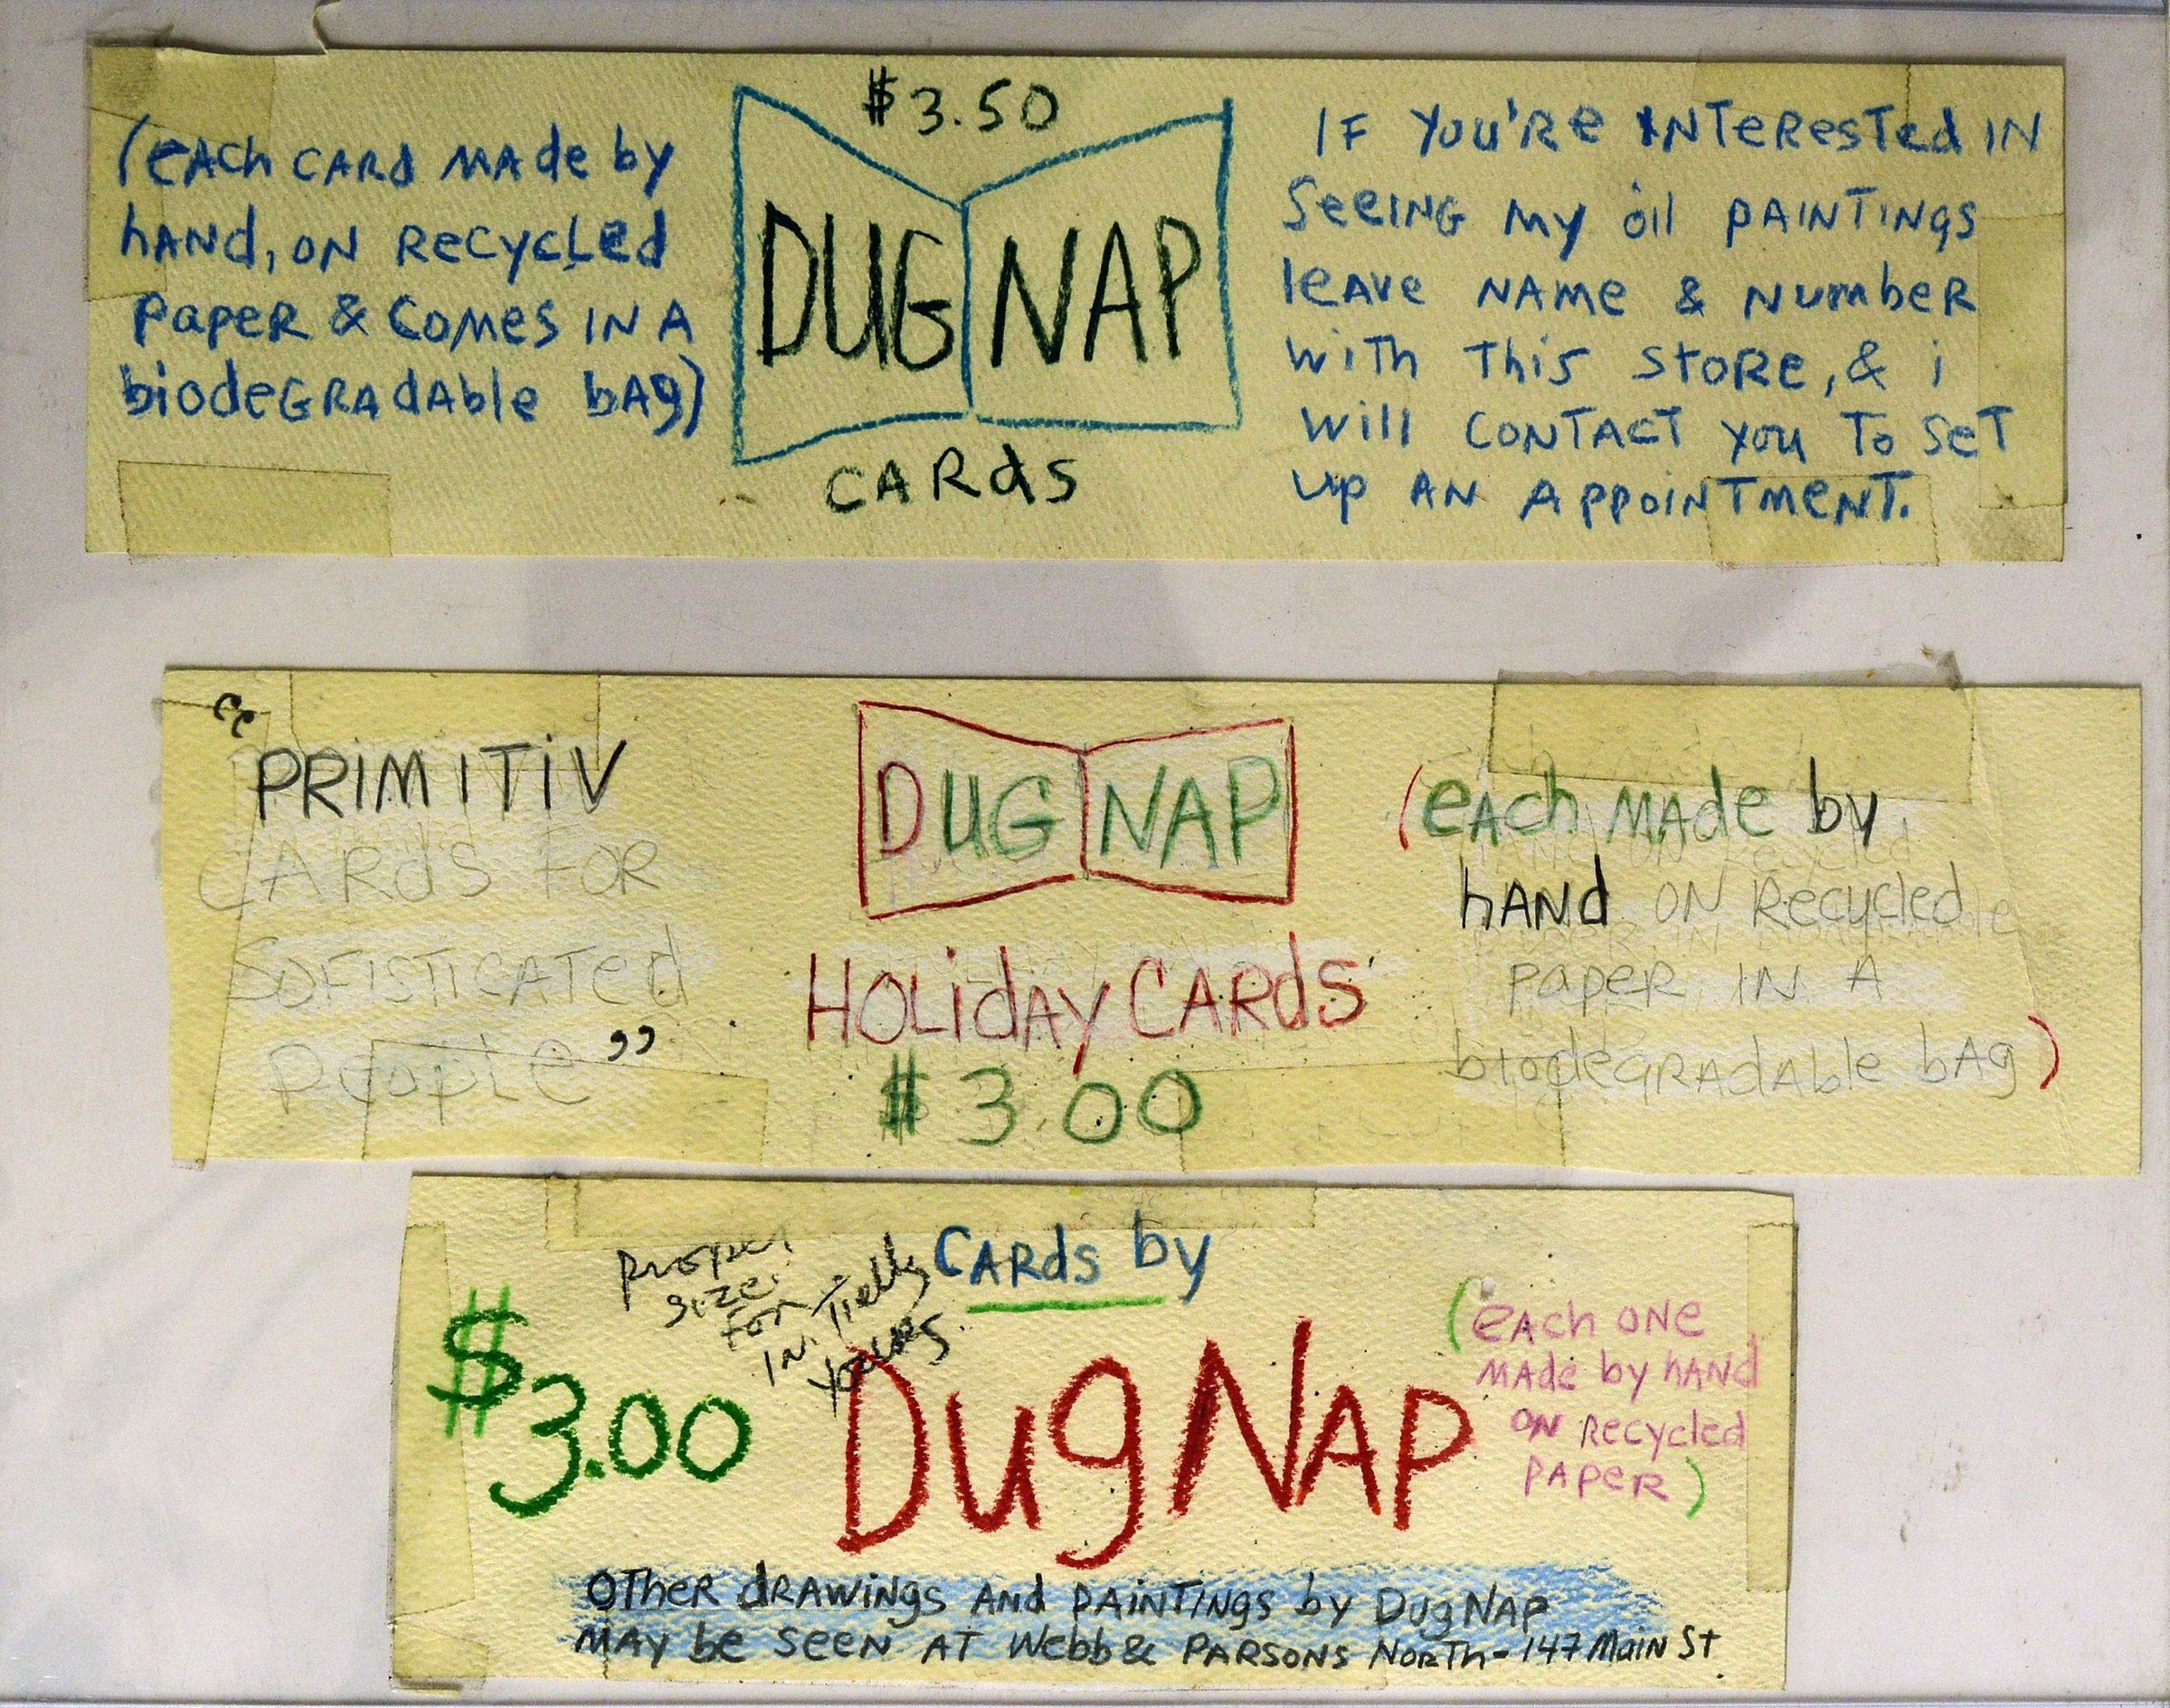 (EACH CARD MADE by
HAND, ON RECYCLED
PAPER & COMES IN A
biodeGRADAble bAg)
$3.50
DUG NAP
CARdS
IF YOU'RE INTERESTED IN
SEEING MY OIL PAINTINGS
LEAVE NAME & NUMBER
WITH THIS STORE, & i
WILL CONTACT YOU TO SET
UP AN APPOINTMENT.
"PRIMITIV
CARdS FOR
SOFISTICATED
PEOPLE"
DUG NAP
HOLIDAY CARdS
$3.00
(EACH MADE by
HAND ON RECYCLED
PAPER IN A
biodeGRADAble bAg)
Proper
size
for
$3.00
CARdS by
DugNAP
(EACH ONE
MADE by HAND
ON RECYCLED
PAPER)
OTHER DRAWINGS AND PAINTINGS by DugNAP
MAY be SEEN AT Webb & PARSONS NORTH - 147 MAIN ST.